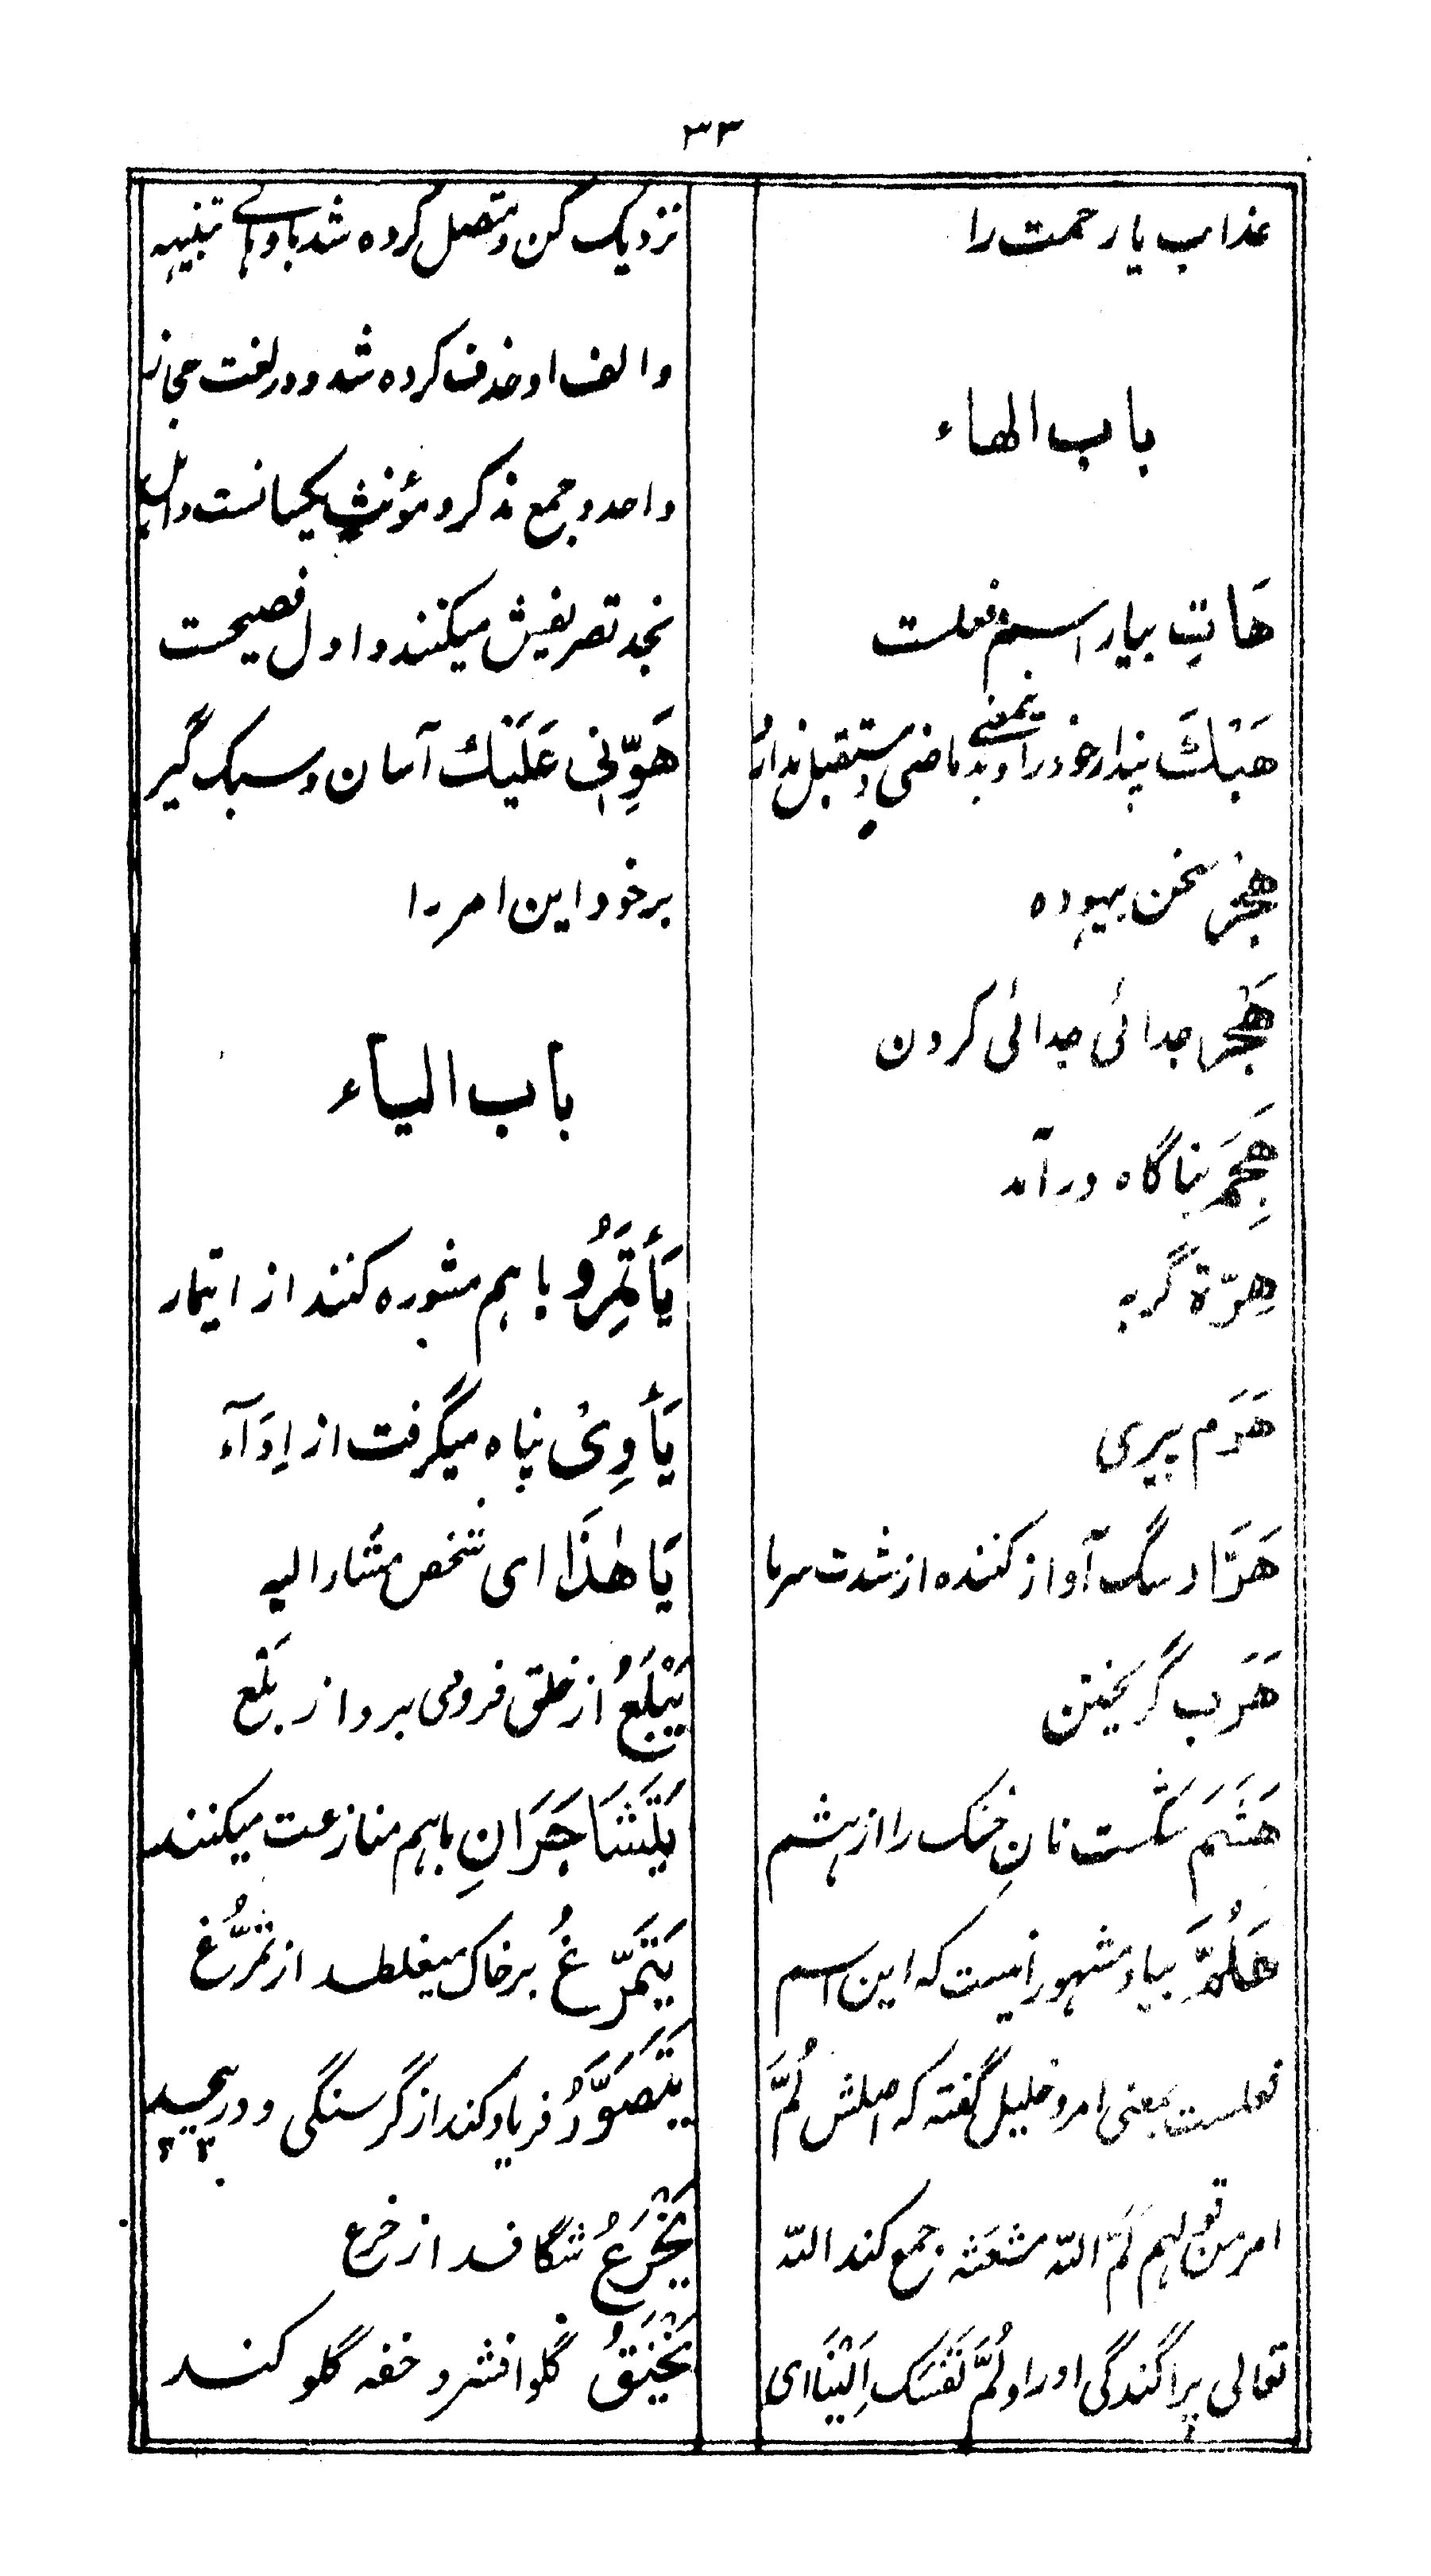 ٣٣
عذاب یا رحمت را
باب الهاء
هَاتِ بیار اسم فعلست
هَبْكَ پندار خود را و بدینمعنی ماضی و مستقبل ندارد
هُجْر سخن بیهوده
هَجْر جدائی جدائی کردن
هَجَمَ بناگاه درآمد
هِرّة گربه
هَرَم پیری
هَرَّار سگ آواز کننده از شدت سرما
هَرَب گریختن
هَشَمَ شکست نانِ خشک را از هشم
هَلُمَّ بیا و مشهور اینست که این اسم
فعلست بمعنی امر و خلیل گفته که اصلش لُمَّ
امر من قولهم لَمَّ الله مشعَثه جمع کند الله
تعالی پراگندگی او را و لُمَّ نَفْسَك اِلَیْنَا ای
نزدیک کن و متصل کرده شد با و هائے تنبیهه
والف او حذف کرده شد و در لغت حجاز
واحد و جمع مذکر و مؤنث یکسانست و اهل
نجد تصریفش میکنند و اول فصیحست
هَوِّنِی عَلَیْكَ آسان و سبک گیر
بر خود این امر را
باب الیاء
یَأْتَمِرُو با هم مشوره کنند از ایتمار
یَأْوِیْ پناه میگرفت از اِوَآء
یَا هٰذَا ای شخص مشار الیه
یَبْلَعُ از حلق فرو می برد از بَلْع
یَتَشَاجَرَانِ باهم منازعت میکنند
یَتَمَرَّغُ بر خاک میغلطد از تَمَرُّغ
یَتَضَوَّرُ فریاد کند از گرسنگی و در پیچید
یَخْرَعُ شگافد از خرع
یَخْنِقُ گلو افشرد خفه گلو کند